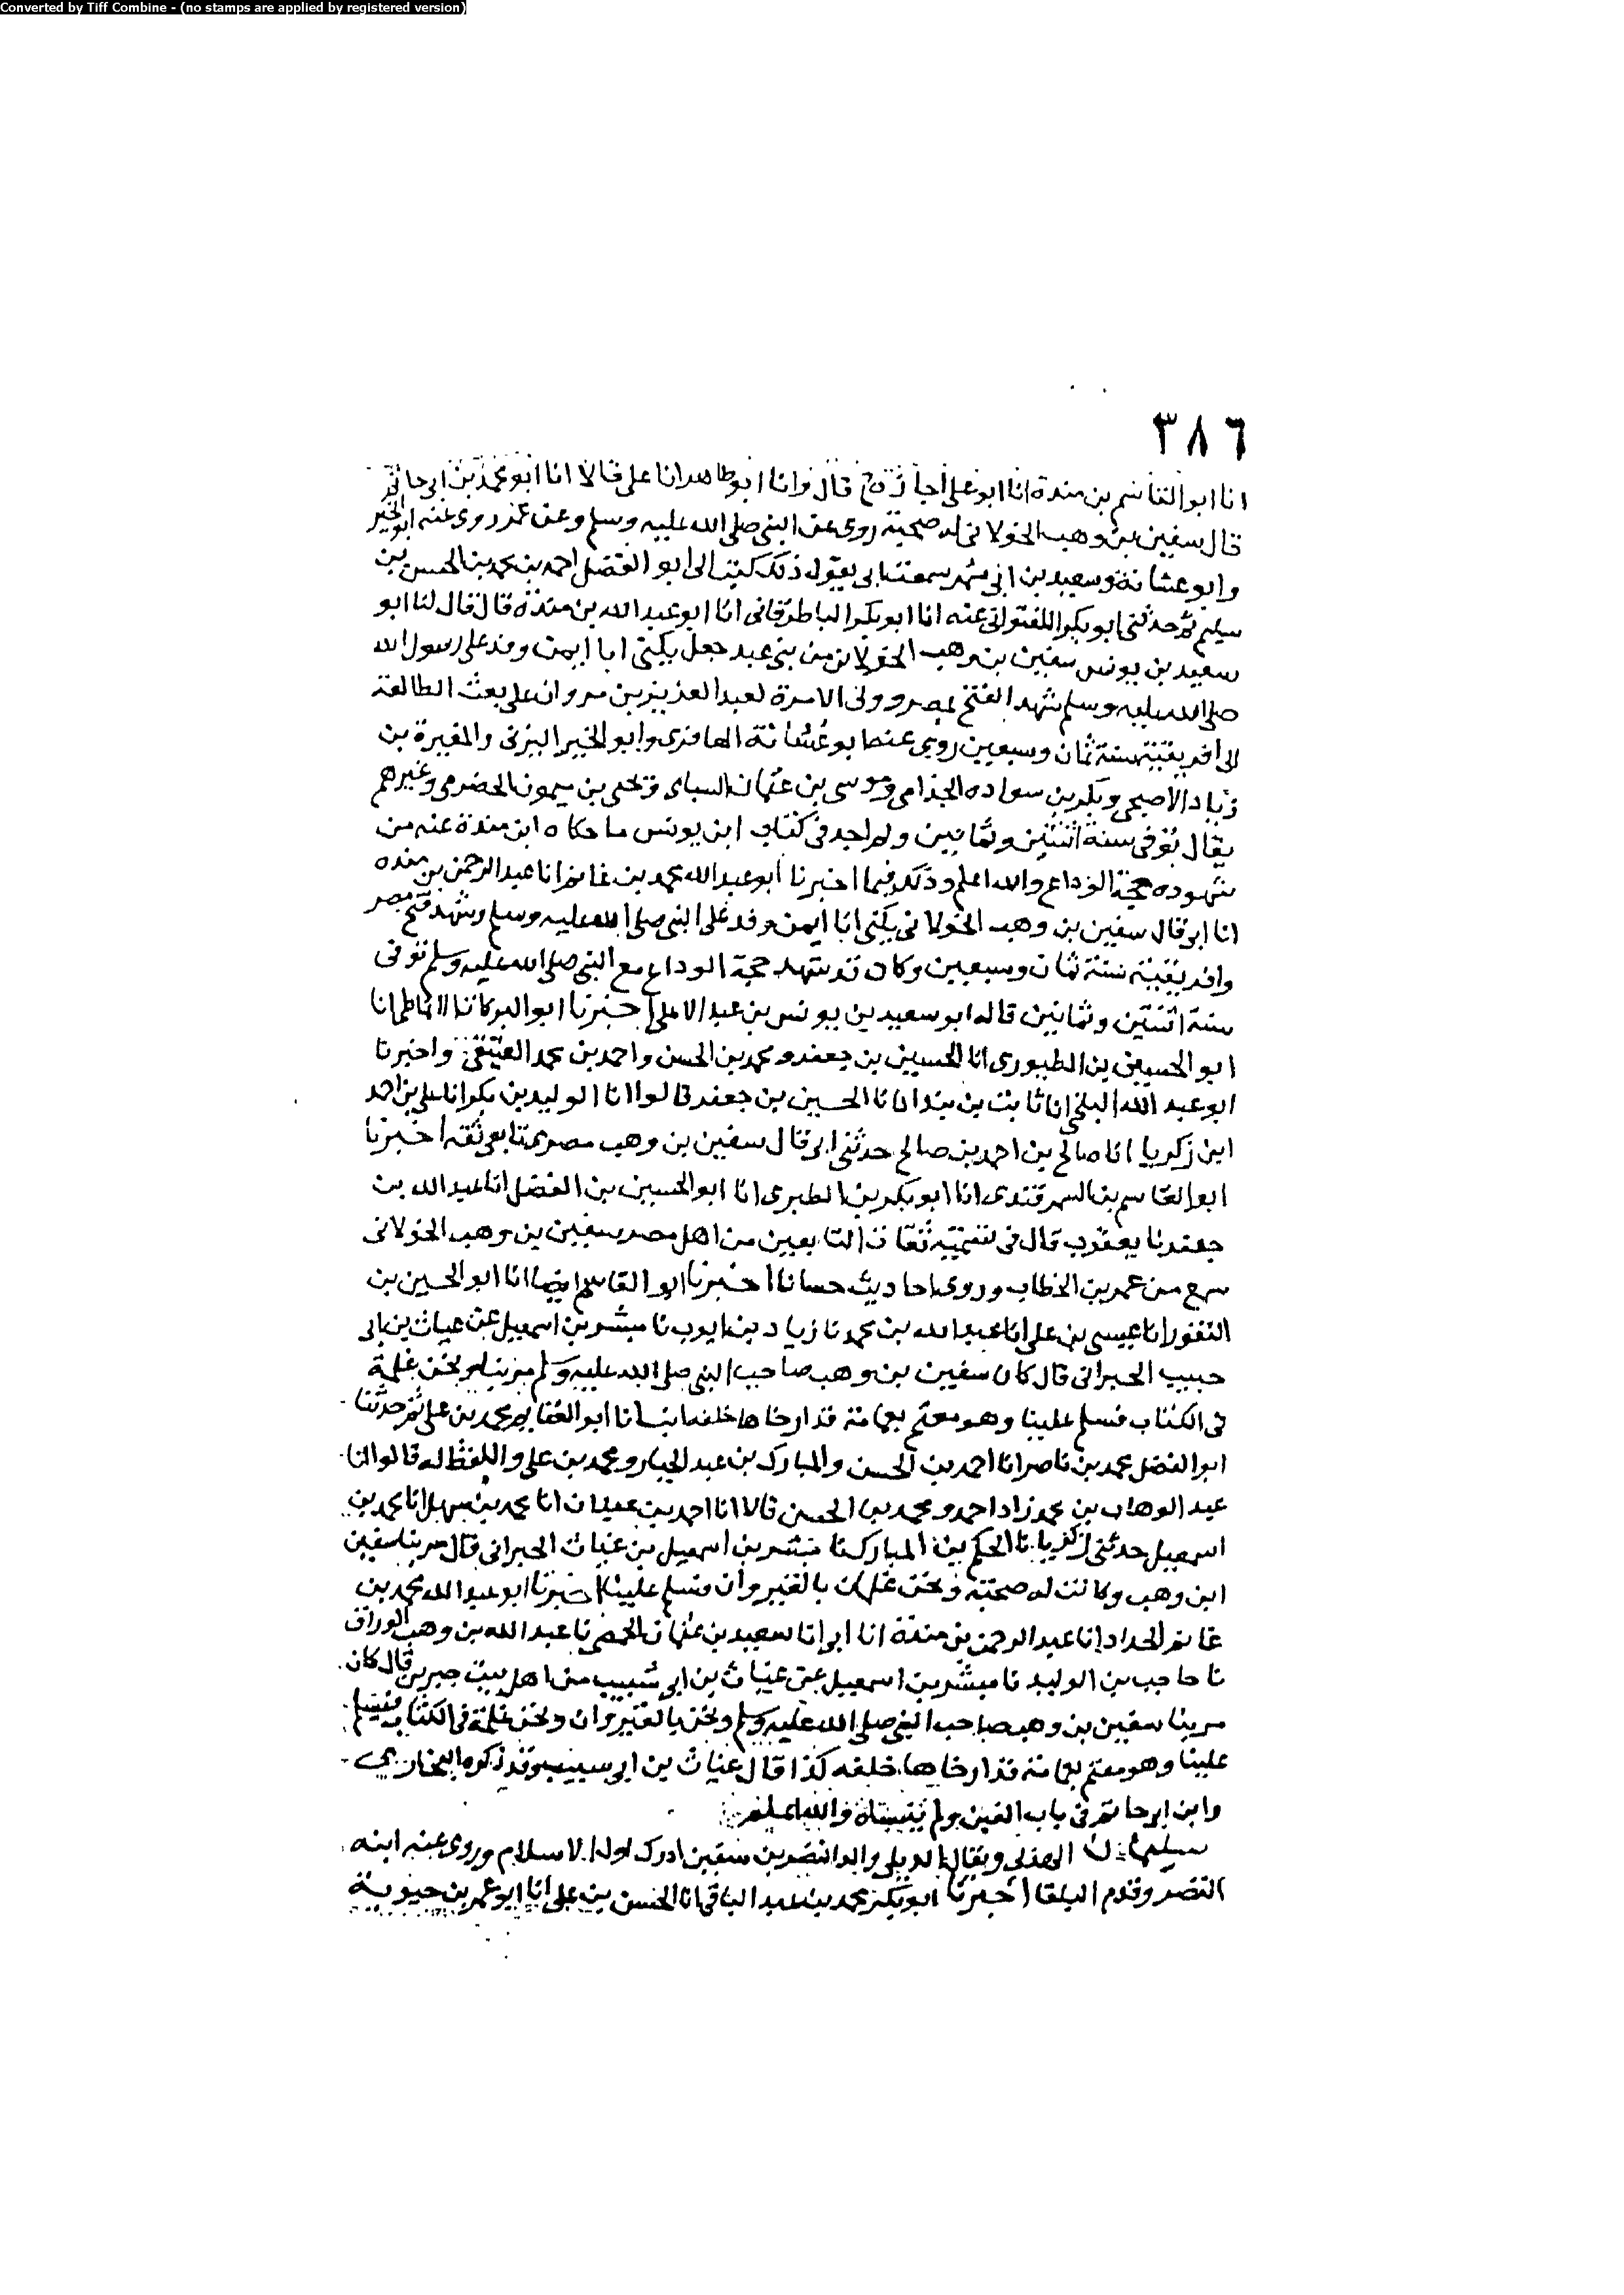 Converted by Tiff Combine - (no stamps are applied by registered version)
٣٨٦
انا ابو القاسم بن مندة انا ابو على اجازة ح قال وانا ابو طاهر انا على قالا انا ابو محمد بن ابى حاتم
قال سفين بن وهب الخولانى له صحبة روى عن النبى صلى الله عليه وسلم وعن عمر روى عنه ابو الخير
وابو عشانة وسعيد بن ابى شمر سمعت ابى يقول ذلك كتب الى ابو الفضل احمد بن محمد بن الحسن بن
سليم ثم حدثنى ابو بكر اللفتوانى عنه انا ابو بكر الباطرقانى انا ابو عبد الله بن مندة قال قال لنا ابو
سعيد بن يونس سفين بن وهب الخولانى من بنى عبد جعل يكنى ابا ايمن وفد على رسول الله
صلى الله عليه وسلم شهد الفتح بمصر وولى الامرة لعبد العزيز بن مروان على بعث الطالعة
الى افريقية سنة ثمان وسبعين روى عنه ابو عشانة المعافرى وابو الخير اليزنى والمغيرة بن
زياد الاصبحى وبكر بن سواده الجذامى وموسى بن عثمان السباى ويحيى بن ميمون الحضرمى وغيرهم
يقال توفى سنة اثنتين وثمانين ولم اجد فى كتاب ابن يونس ما حكاه ابن مندة عنه من
شهوده حجة الوداع والله اعلم وذلك فيما اخبرنا ابو عبد الله محمد بن غانم انا عبد الرحمن بن منده
انا ابى قال سفين بن وهب الخولانى يكنى ابا ايمن وفد على النبى صلى الله عليه وسلم وشهد فتح مصر
وافريقية سنة ثمان وسبعين وكان قد شهد حجة الوداع مع النبى صلى الله عليه وسلم توفى
سنة اثنتين وثمانين قاله ابو سعيد بن يونس بن عبد الاعلى اخبرنا ابو البركات الانماطى انا
ابو الحسين بن الطيورى انا الحسين بن جعفر ومحمد بن الحسن واحمد بن محمد العتيقى واخبرنا
ابو عبد الله البلخى انا ثابت بن بندار انا الحسين بن جعفر قالوا انا الوليد بن بكر انا على بن احمد
ابن زكريا انا صالح بن احمد بن صالح حدثنى ابى قال سفين بن وهب مصرى تابعى ثقة اخبرنا
ابو القاسم بن السمرقندى انا ابو بكر بن الطبرى انا ابو الحسين بن الفضل انا عبد الله بن
جعفر نا يعقوب قال فى تسمية ثقات التابعين من اهل مصر سفين بن وهب الخولانى
سمع من عمر بن الخطاب وروى احاديث حسانا اخبرنا ابو القاسم ايضا انا ابو الحسين بن
النقور انا عيسى بن على انا عبد الله بن محمد نا زياد بن ايوب نا مبشر بن اسمعيل عن غياث بن ابى
حبيب الحبرانى قال كان سفين بن وهب صاحب النبى صلى الله عليه وسلم يمر بنا ونحن غلمة
فى الكتاب فسلم علينا وهو معتم بعمامة قد ارخاها خلفه انبانا ابو الغنايم محمد بن على ثم حدثنا
ابو الفضل محمد بن ناصر انا احمد بن الحسن والمبارك بن عبد الجبار ومحمد بن على واللفظ له قالوا انا
عبد الوهاب بن محمد زاد احمد ومحمد بن الحسن قالا انا احمد بن عبدان انا محمد بن سهل انا محمد بن
اسمعيل حدثنى زكريا نا الحكم بن المبارك نا مبشر بن اسمعيل بن غياث الحبرانى قال مر بنا سفين
ابن وهب وكانت له صحبة ونحن غلمان بالقيروان فسلم علينا اخبرنا ابو عبد الله محمد بن
غانم الحداد انا عبد الرحمن بن مندة انا ابى انا سعيد بن عثمان الحمصى نا عبد الله بن وهب الوراق
نا حاجب بن الوليد نا مبشر بن اسمعيل عن غياث بن ابى شبيب من اهل بيت جبرين قال كان
مر بنا سفين بن وهب صاحب النبى صلى الله عليه وسلم ونحن بالقيروان ونحن غلمة فى الكتاب فيسلم
علينا وهو معتم بعمامة قد ارخاها خلفه كذا قال غياث بن ابى شبيب وقد ذكره البخارى
وابن ابى حاتم فى باب الغين ولم ينسباه والله اعلم
الهذلى ويقال الديلى والد النضر بن سفين ادرك اول الاسلام وروى عنه ابنه
النضر وقدم البلقا اخبرنا ابو بكر محمد بن عبد الباقى انا الحسن بن على انا ابو عمر بن حيوية